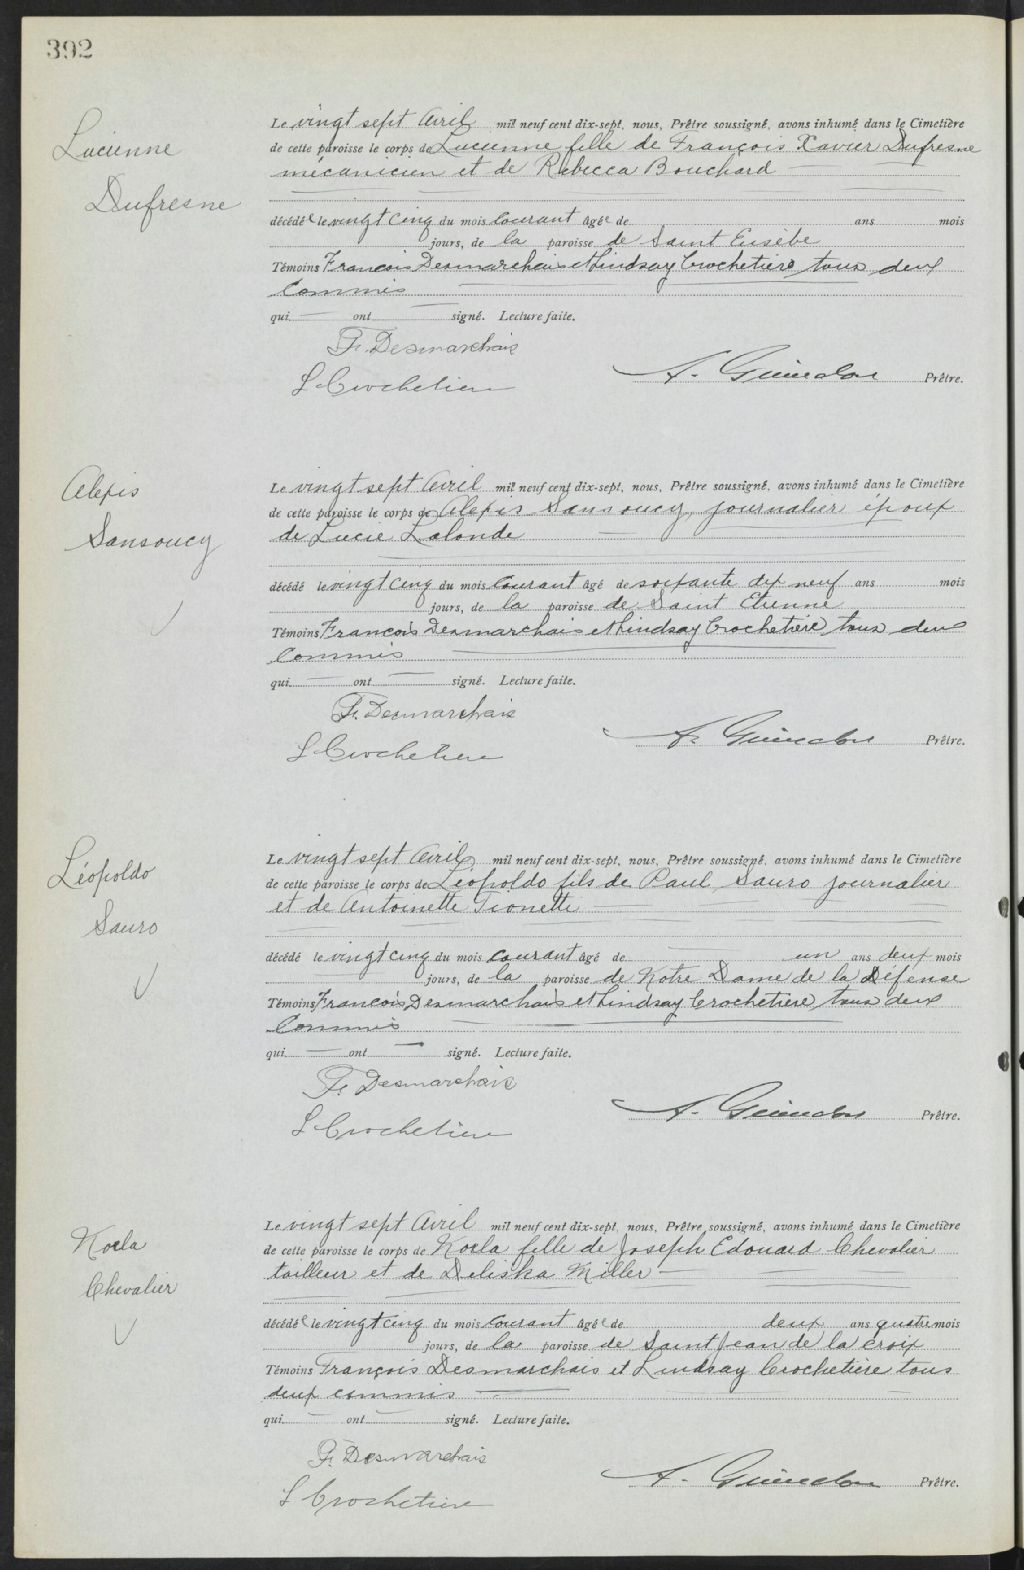 392
Lucienne
Dufresne
Le vingt sept Avril mil neuf cent dix-sept, nous, Prêtre soussigné, avons inhumé dans le Cimetière
de cette paroisse le corps de Lucienne fille de François Xavier Dufresne
mécanicien et de Rébecca Bouchard
décédée le vingt cinq du mois courant âgée de ans mois
jours, de la paroisse de Saint Eusèbe
Témoins François Desmarchais et Lindsay Crochetière tous deux
Commis
qui ont signé. Lecture faite.
F. Desmarchais
L Crochetiere
A. Guindon Prêtre.
Alexis
Sansoucy
Le vingt sept Avril mil neuf cent dix-sept, nous, Prêtre soussigné, avons inhumé dans le Cimetière
de cette paroisse le corps de Alexis Sansoucy, journalier époux
de Lucie Lalonde
décédé le vingt cinq du mois courant âgé de soixante dix neuf ans mois
jours, de la paroisse de Saint Etienne
Témoins François Desmarchais et Lindsay Crochetière tous deux
Commis
qui ont signé. Lecture faite.
F. Desmarchais
L Crochetiere
A. Guindon Prêtre.
Léopoldo
Sauro
Le vingt sept Avril mil neuf cent dix-sept, nous, Prêtre soussigné, avons inhumé dans le Cimetière
de cette paroisse le corps de Léopoldo fils de Paul Sauro journalier
et de Antoinette Tionette
décédé le vingt cinq du mois courant âgé de un ans deux mois
jours, de la paroisse de Notre Dame de la Défense
Témoins François Desmarchais et Lindsay Crochetière tous deux
Commis
qui ont signé. Lecture faite.
F. Desmarchais
L Crochetiere
A. Guindon Prêtre.
Noela
Chevalier
Le vingt sept Avril mil neuf cent dix-sept, nous, Prêtre soussigné, avons inhumé dans le Cimetière
de cette paroisse le corps de Noela fille de Joseph Edouard Chevalier
tailleur et de Deliska Miller
décédée le vingt cinq du mois courant âgée de deux ans quatre mois
jours, de la paroisse de Saint Jean de la Croix
Témoins François Desmarchais et Lindsay Crochetière tous
deux commis
qui ont signé. Lecture faite.
F. Desmarchais
L Crochetiere
A. Guindon Prêtre.